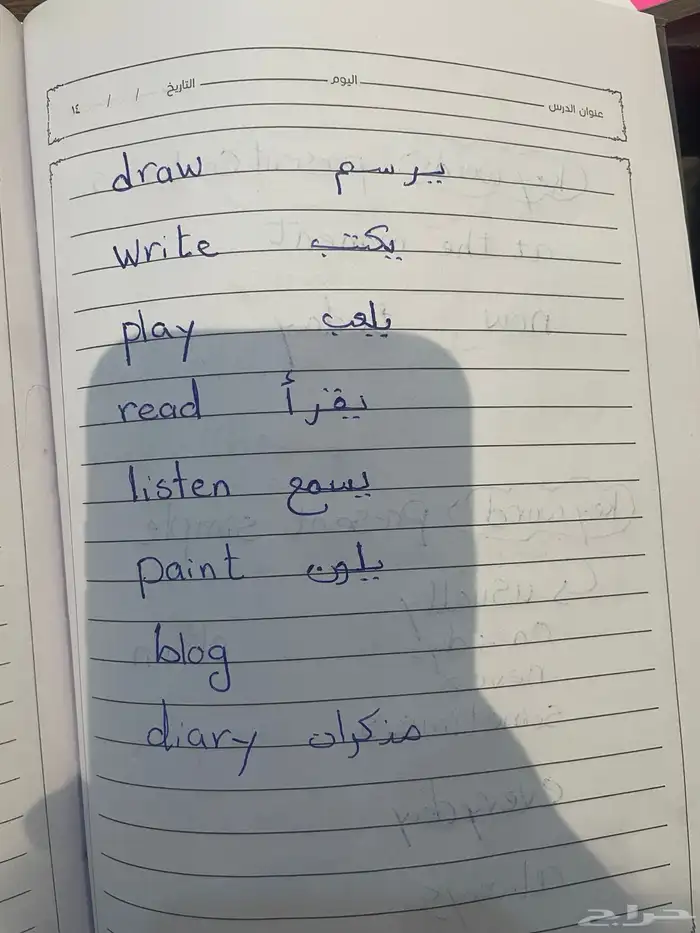 عنوان الدرس اليوم التاريخ / / ١٤
draw يرسم
write يكتب
play يلعب
read يقرأ
listen يسمع
paint يلون
blog
diary مذكرات
everyday
always
حراج